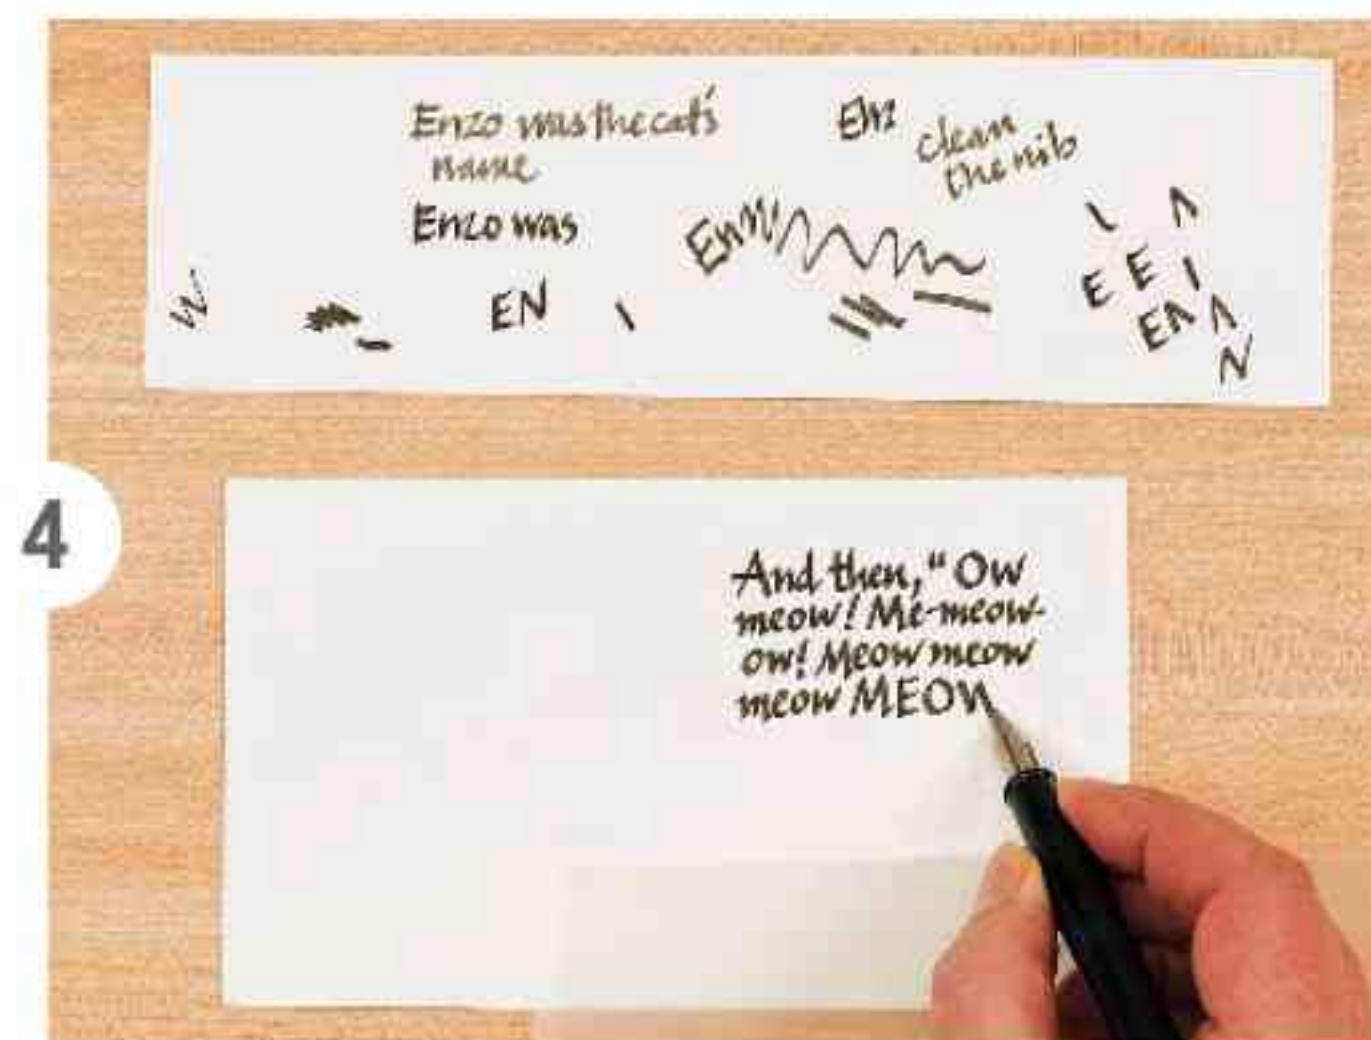 Enzo was the cat's
name
Enz
clean
the nib
Enzo was
Enn
EN
E E
EΛ
N
4
And then, " Ow
meow! Me-meow-
ow! Meow meow
meow MEOW